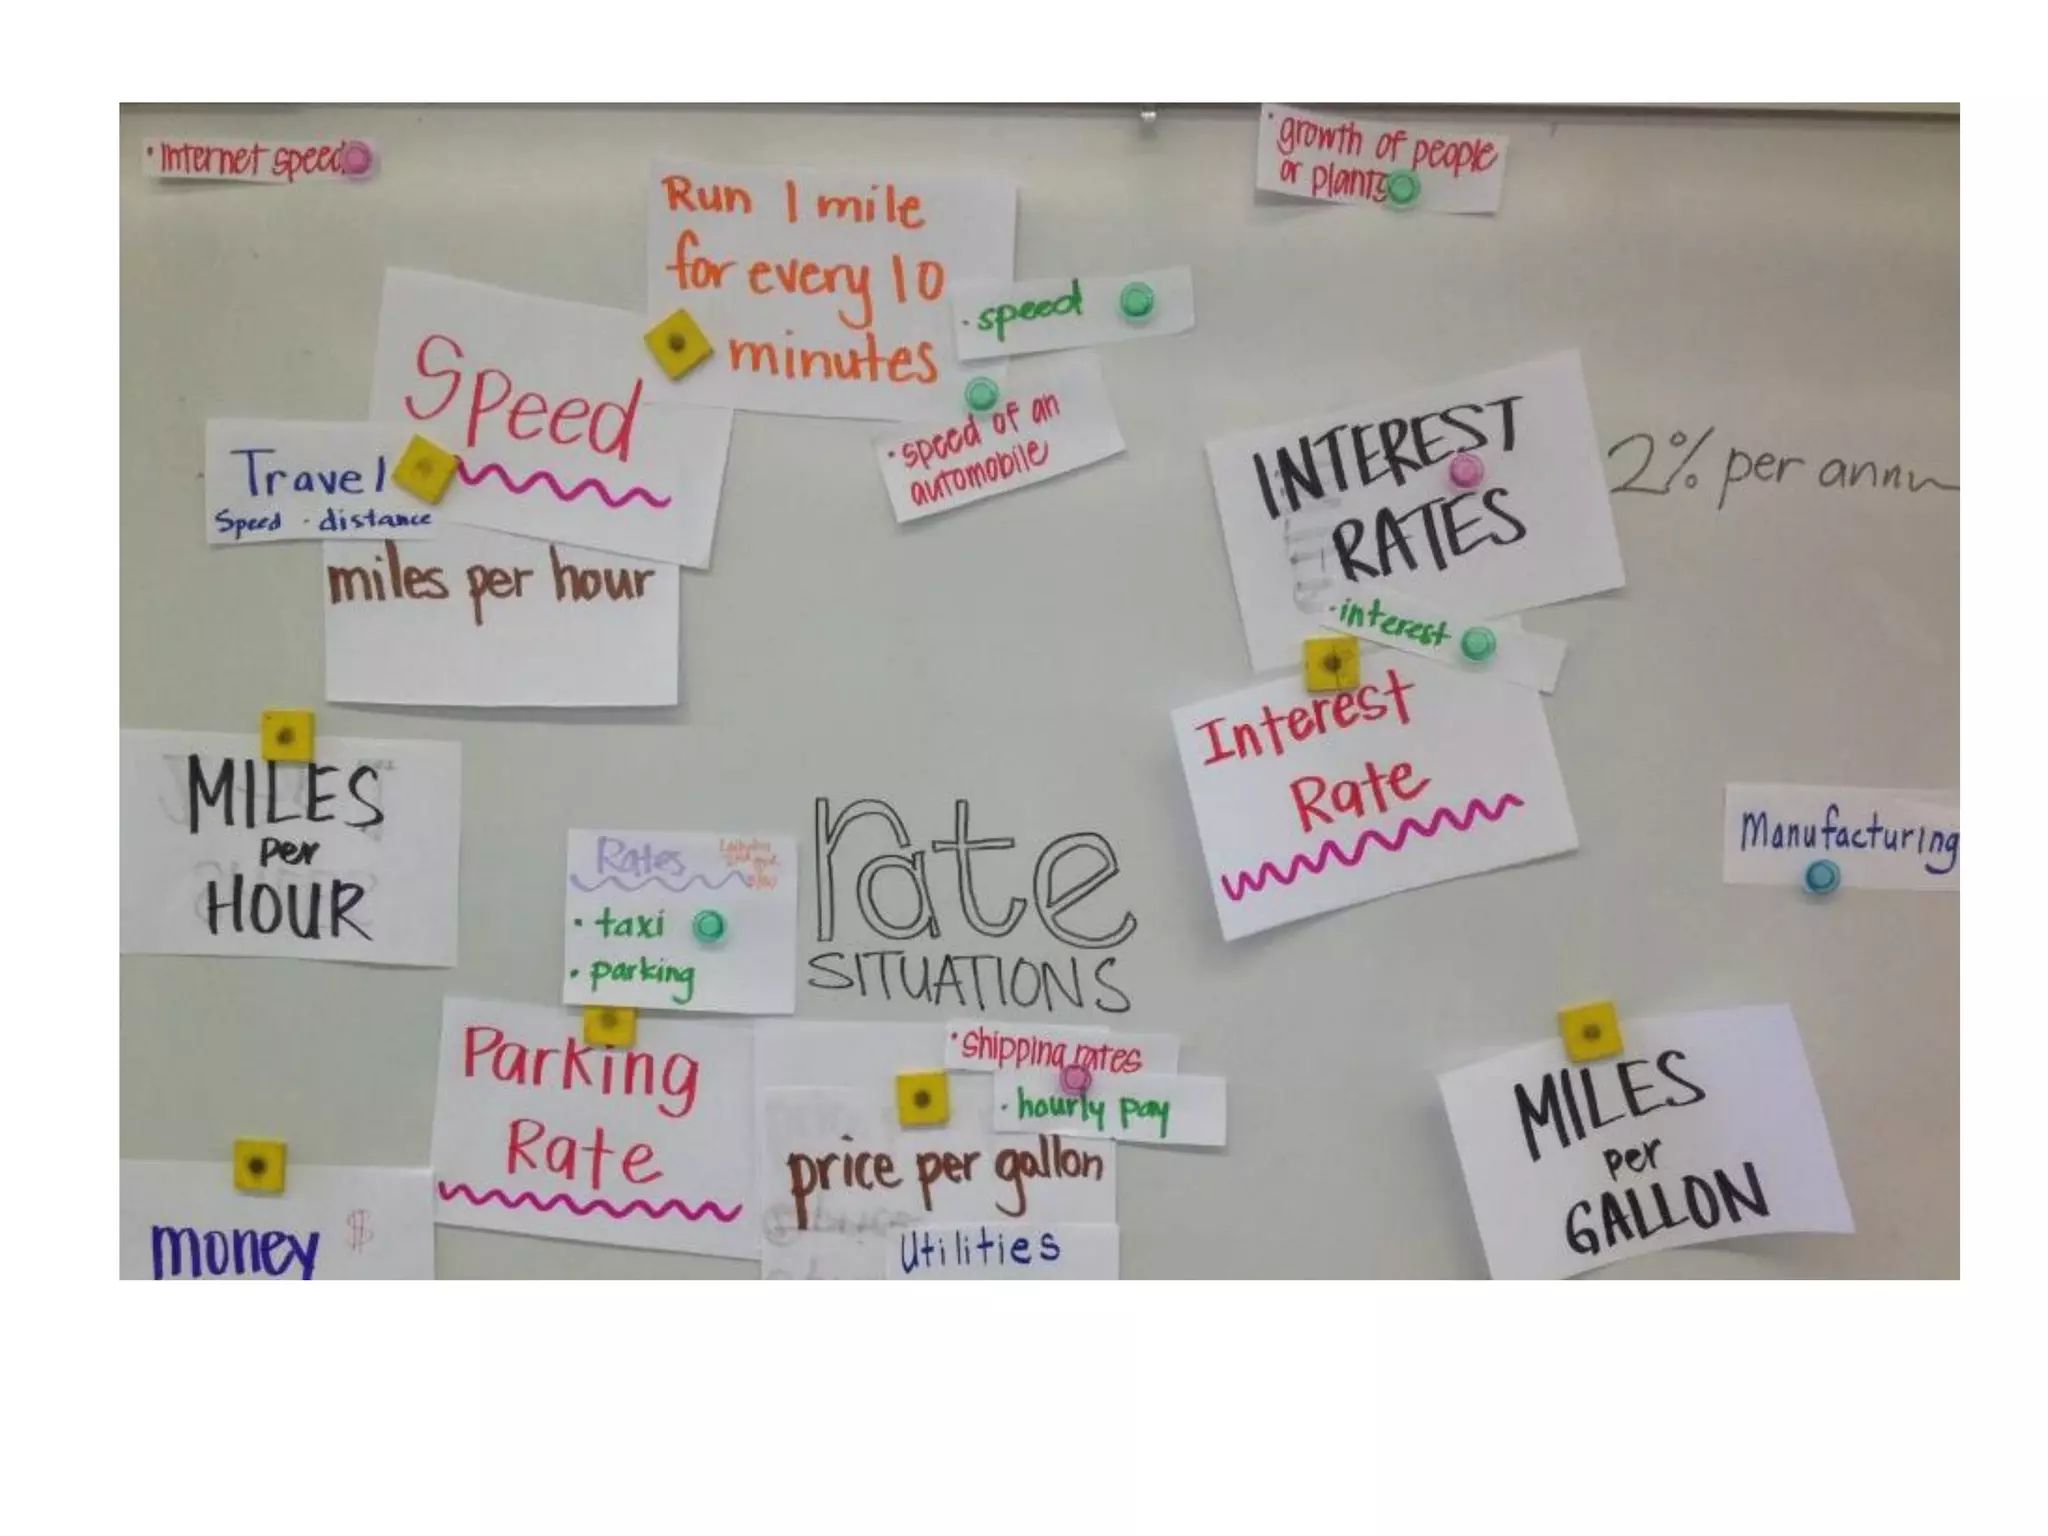 · Internet speed
· growth of people
or plants
Run 1 mile
for every 10
minutes
· speed
Speed
· speed of an
automobile
Travel
Speed · distance
miles per hour
INTEREST
RATES
2% per annu
· interest
Interest
Rate
MILES
per
HOUR
Manufacturing
Rates
· taxi
· parking
rate
SITUATIONS
Parking
Rate
· Shipping rates
· hourly pay
price per gallon
Utilities
MILES
per
GALLON
money $